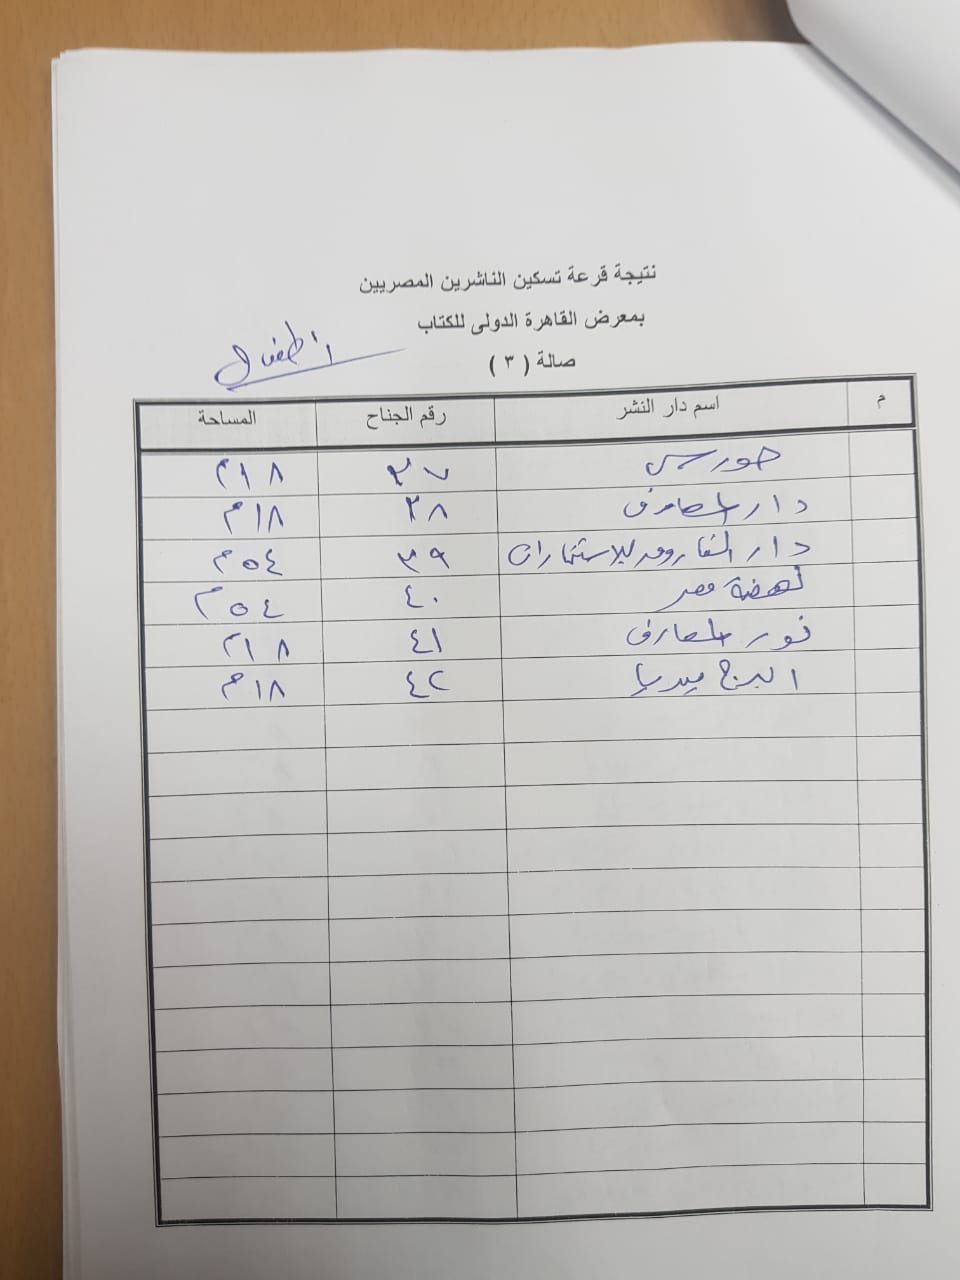 نتيجة قرعة تسكين الناشرين المصريين
بمعرض القاهرة الدولى للكتاب
صالة ( ٣ )
أطفال
م اسم دار النشر رقم الجناح المساحة
حورس ٣٧ ١٨م
دار المعارف ٣٨ ١٨م
دار الفاروق للاستثمارات ٣٩ ٥٤م
نهضة مصر ٤٠ ٥٤م
نور المعارف ٤١ ١٨م
البرج ميديا ٤٢ ١٨م